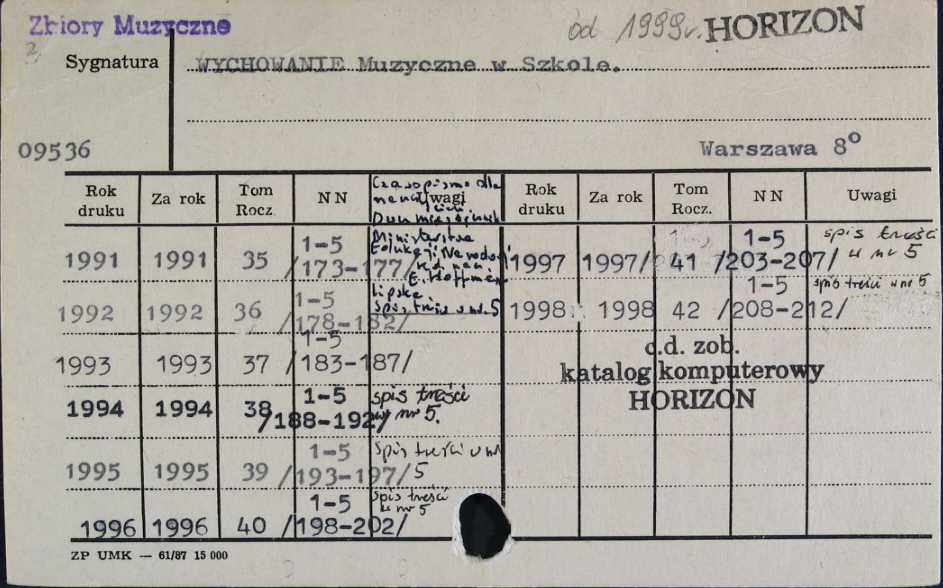 Zbiory Muzyczne
od 1999r. HORIZON
Sygnatura
WYCHOWANIE Muzyczne w Szkole.
09536
Warszawa 8º
Rok druku Za rok Tom Rocz. NN Uwagi Rok druku Za rok Tom Rocz. NN Uwagi
Czasopismo dla
Ministerstwa
Lipska
spis treści w nr 5
1991 1991 35 1-5 /173-177/
1992 1992 36 1-5 /178-182/
1993 1993 37 1-5 /183-187/
1994 1994 38 1-5 /188-192/ spis treści w nr 5.
1995 1995 39 1-5 /193-197/ spis treści w nr 5
1996 1996 40 1-5 /198-202/ spis treści w nr 5
1997 1997/ 41 1-5 /203-207/ spis treści w nr 5
1998 1998 42 1-5 /208-212/ spis treści w nr 5
c.d. zob.
katalog komputerowy
HORIZON
ZP UMK — 61/87 15 000